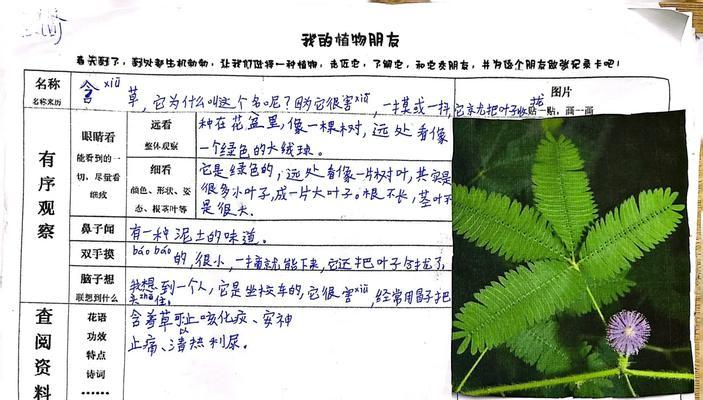 我的植物朋友
春天到了，到处都生机勃勃，让我们选择一种植物，走近它，了解它，和它交朋友，并为这个朋友做张记录卡吧！
名称
名称来历
图片
贴一贴，画一画
含xiū草，它为什么叫这个名呢？因为它很害xiū，一摸或一抖，它就把叶子收拢
有序观察
眼睛看
能看到的一切，尽量看细致
远看
整体观察
种在花盆里，像一棵树，远处看像
一个绿色的大绒球。
细看
颜色、形状、姿态、根茎叶等
它是绿色的，远处看像一片树叶，其实是
很多小叶子，成一片大叶子。根不长，茎叶不
是很大。
鼻子闻
有一种泥土的味道。
双手摸
báo báo的，很小，一摸就能下来，它还把叶子合拢了
脑子想
联想到什么
我想到一个人，它是坐车的，它很害xiū，经常用帽子把
住。
查阅资料
花语
功效
特点
诗词
……
含羞草可止咳化痰、安神
止痛、清热利尿。